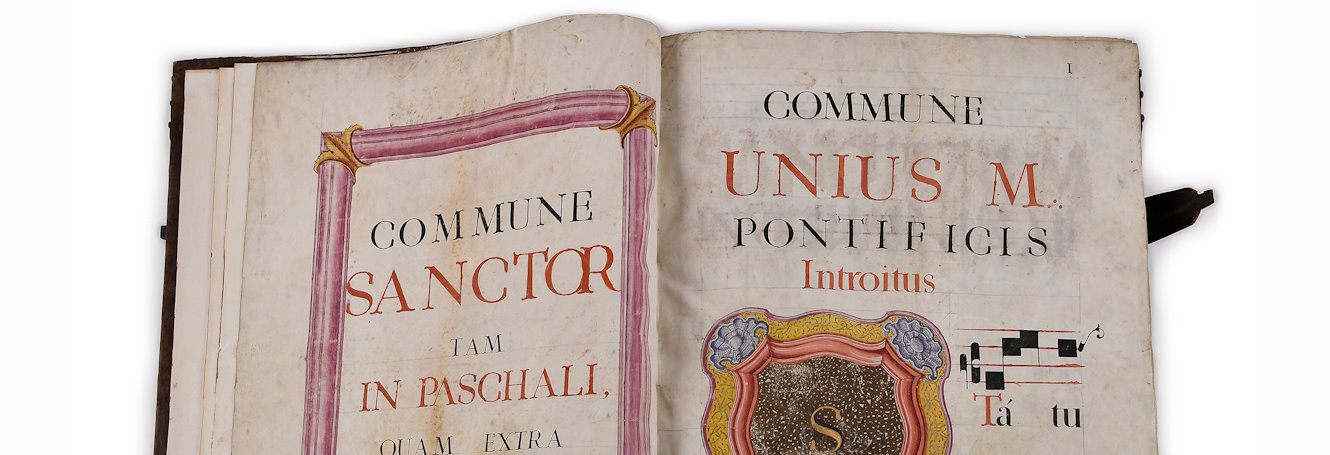 COMMUNE
SANCTOR
TAM
IN PASCHALI,
QUAM EXTRA
I
COMMUNE
UNIUS M.
PONTIFICIS
Introitus
S
Tá tu